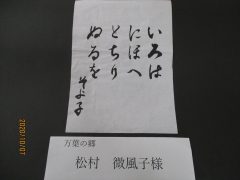 いろは
にほへ
とちり
ぬるを
万葉の郷
松村 微風子様
2020/10/07